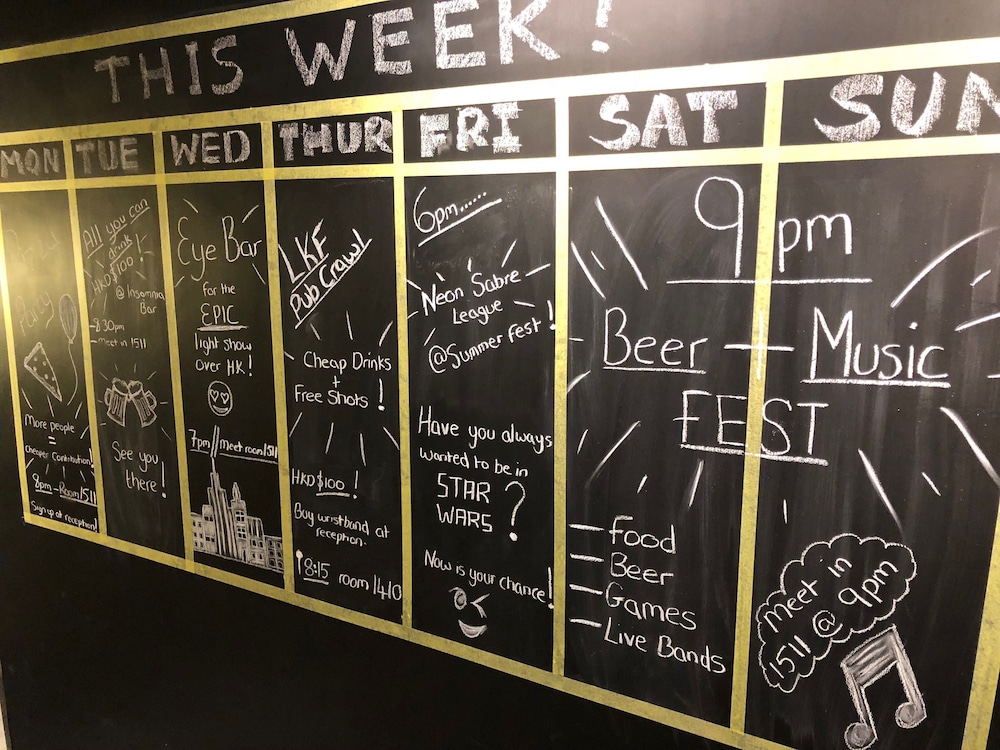 THIS WEEK!
MON
TUE
WED
THUR
FRI
SAT
SUN
Party
More people
=
Cheaper Contribution!
8pm - Room 1511
Sign up at reception!
All you can
drink!
HKD$100!
@ Insomnia
Bar
-8:30pm
-meet in 1511
See you
there!
Eye Bar
for the
EPIC
light show
over HK!
7pm // meet room 1511
LKF
Pub Crawl
Cheap Drinks
+
Free Shots!
HKD$100!
Buy wristband at
reception.
8:15 room 1410
6pm......
Neon Sabre
League
@Summer fest!
Have you always
wanted to be in
STAR
WARS?
Now is your chance!
9pm
Beer + Music
FEST
- Food
- Beer
- Games
- Live Bands
meet in
1511 @ 9pm